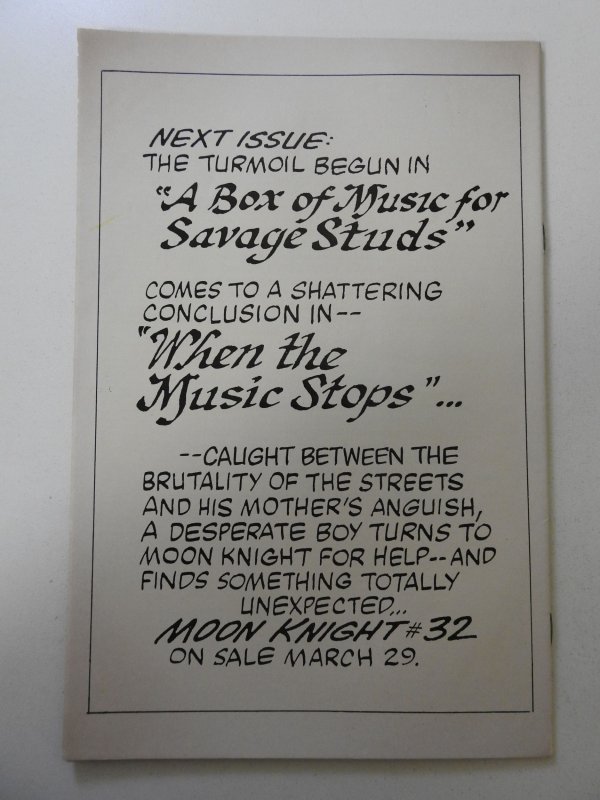 NEXT ISSUE:
THE TURMOIL BEGUN IN
"A Box of Music for
Savage Studs"
COMES TO A SHATTERING
CONCLUSION IN--
"When the
Music Stops"...
--CAUGHT BETWEEN THE
BRUTALITY OF THE STREETS
AND HIS MOTHER'S ANGUISH,
A DESPERATE BOY TURNS TO
MOON KNIGHT FOR HELP--AND
FINDS SOMETHING TOTALLY
UNEXPECTED...
MOON KNIGHT #32
ON SALE MARCH 29.